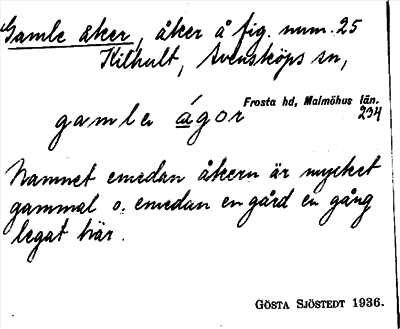 Gamle åker, åker å fig. num. 25
Kilhult, Svensköps sn,
Frosta hd, Malmöhus län.
gamle ágor 234
Namnet emedan åkern är mycket
gammal o. emedan en gård en gång
legat här.
GÖSTA SJÖSTEDT 1936.